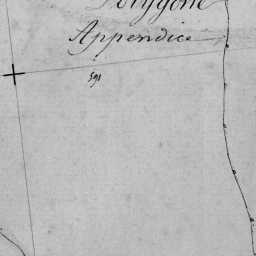 Polygone
Appendice